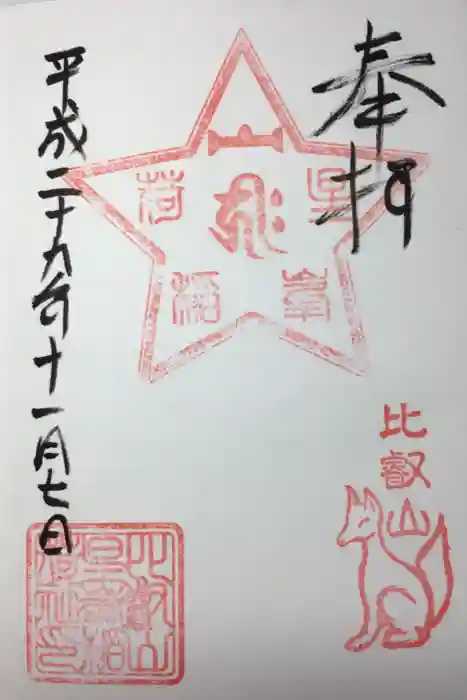 奉拝
星峯
稲荷
比叡山
平成二十九年十一月七日